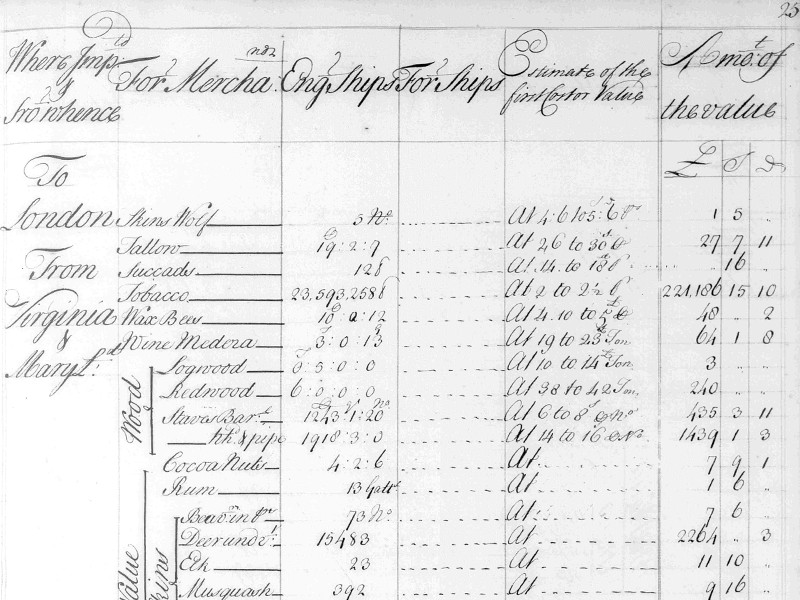 25
Where Imp.ts For.n Mercha.ndz Eng. Ships For. Ships Estimate of the Amo.t of
& fro whence first Cost or Value the value
£ S D
To
London Skins Wolf 5 No. At 4:6 to 5:6 1 5 ..
Tallow 19:2:7 At 26 to 30 27 7 11
From Succads 128 At 14 to 18 .. 16 ..
Tobacco 23,593,258 At 2 to 2½ 221,186 15 10
Virginia Wax Bees 10 2:12 At 4.10 to 5 48 .. 2
& Wine Medera 3:0:13 At 19 to 23 Ton 64 1 8
Mary L.d Logwood 0:5:0:0 At 10 to 14 Ton 3
Wood Redwood 6:0:0:0 At 38 to 42 Ton 240
Staves Bar.l 1243:1:20 At 6 to 8 No. 435 3 11
hh.d & pipe 1918:3:0 At 14 to 16 No. 1439 1 3
Cocoa Nuts 4:2:6 At 7 9 1
Rum 13 Gall.s At 1 6 ..
Beav.r in p.r 73 No. At 7 6
Deer und.r 15483 At 2264 .. 3
Elk 23 At 11 10
Musquash 392 At 9 16